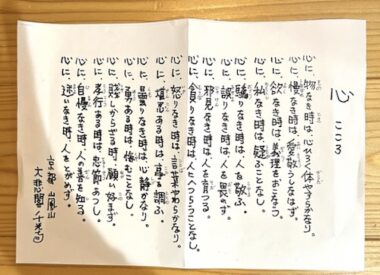 心 こころ
心に、物なき時は、心ひろく体やすらかなり。
心に、慢なき時は、愛敬うしなはず。
心に、欲なき時は、義理をおこなう。
心に、私なき時は、疑ふことなし。
心に、驕りなき時は、人を敬ふ。
心に、誤りなき時は、人を畏れず。
心に、邪見なき時は、人を育つる。
心に、貪りなき時は、人にへつらうことなし。
心に、怒りなき時は、言葉やわらかなり。
心に、堪忍ある時は、事を調ふ。
心に、曇りなき時は、心静かなり。
心に、勇ある時は、悔むことなし。
心に、賤しからざる時は、願い好まず。
心に、孝行ある時は、忠節あつし。
心に、自慢なき時は、人の善を知る。
心に、迷いなき時は、人をとがめず。
京都 嵐山
大悲閣 千光寺